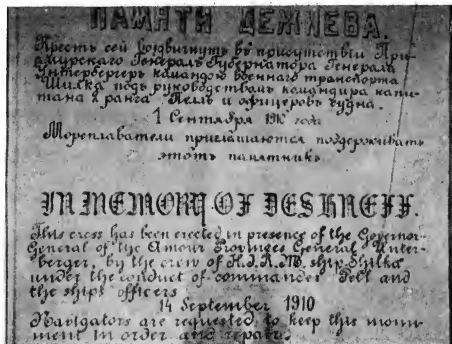 ПАМЯТИ ДЕЖНЕВА.
Крестъ сей воздвигнутъ въ присутствіи При-
амурскаго Генералъ Губернатора Генерала
Унтербергеръ командою военнаго транспорта
Шилка подъ руководствомъ командира капи-
тана 2 ранга Пелль и офицеровъ судна.
1 Сентября 1910 года
Мореплаватели приглашаются поддерживать
этотъ памятникъ
IN MEMORY OF DESHNEFF.
This cross has been erected in presence of the Governor-
General of the Amour Provinces General Unter-
berger, by the crew of H.I.R.M. ship Shilka
under the conduct of commander Pell and
the ships officers
14 September 1910
Navigators are requested to keep this monu-
ment in order and repairs.